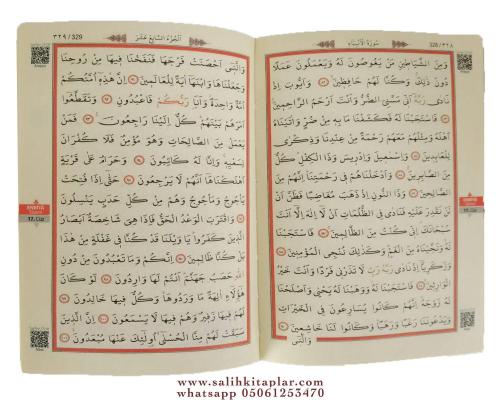 328/٣٢٨
سُورَةُ الْاَنْبِيَاءِ
وَمِنَ الشَّيَاطِينِ مَنْ يَغُوصُونَ لَهُ وَيَعْمَلُونَ عَمَلًا
دُونَ ذٰلِكَ وَكُنَّا لَهُمْ حَافِظِينَ وَاَيُّوبَ اِذْ
نَادٰى رَبَّهُ اَنِّي مَسَّنِيَ الضُّرُّ وَاَنْتَ اَرْحَمُ الرَّاحِمِينَ
فَاسْتَجَبْنَا لَهُ فَكَشَفْنَا مَا بِهِ مِنْ ضُرٍّ وَاٰتَيْنَاهُ
اَهْلَهُ وَمِثْلَهُمْ مَعَهُمْ رَحْمَةً مِنْ عِنْدِنَا وَذِكْرٰى
لِلْعَابِدِينَ وَاِسْمٰعِيلَ وَاِدْرِيسَ وَذَا الْكِفْلِ كُلٌّ
مِنَ الصَّابِرِينَ وَاَدْخَلْنَاهُمْ فِي رَحْمَتِنَا اِنَّهُمْ مِنَ
الصَّالِحِينَ وَذَا النُّونِ اِذْ ذَهَبَ مُغَاضِبًا فَظَنَّ اَنْ
لَنْ نَقْدِرَ عَلَيْهِ فَنَادٰى فِي الظُّلُمَاتِ اَنْ لَا اِلٰهَ اِلَّا اَنْتَ
سُبْحَانَكَ اِنِّي كُنْتُ مِنَ الظَّالِمِينَ فَاسْتَجَبْنَا
لَهُ وَنَجَّيْنَاهُ مِنَ الْغَمِّ وَكَذٰلِكَ نُنْجِي الْمُؤْمِنِينَ
وَزَكَرِيَّا اِذْ نَادٰى رَبَّهُ رَبِّ لَا تَذَرْنِي فَرْدًا وَاَنْتَ خَيْرُ
الْوَارِثِينَ فَاسْتَجَبْنَا لَهُ وَوَهَبْنَا لَهُ يَحْيٰى وَاَصْلَحْنَا
لَهُ زَوْجَهُ اِنَّهُمْ كَانُوا يُسَارِعُونَ فِي الْخَيْرَاتِ
وَيَدْعُونَنَا رَغَبًا وَرَهَبًا وَكَانُوا لَنَا خَاشِعِينَ
وَالَّتِي
اَلْجُزْءُ السَّابِعَ عَشَرَ
٣٢٩/329
وَالَّتِي اَحْصَنَتْ فَرْجَهَا فَنَفَخْنَا فِيهَا مِنْ رُوحِنَا
وَجَعَلْنَاهَا وَابْنَهَا اٰيَةً لِلْعَالَمِينَ اِنَّ هٰذِهِ اُمَّتُكُمْ
اُمَّةً وَاحِدَةً وَاَنَا رَبُّكُمْ فَاعْبُدُونِ وَتَقَطَّعُوا
اَمْرَهُمْ بَيْنَهُمْ كُلٌّ اِلَيْنَا رَاجِعُونَ فَمَنْ
يَعْمَلْ مِنَ الصَّالِحَاتِ وَهُوَ مُؤْمِنٌ فَلَا كُفْرَانَ
لِسَعْيِهِ وَاِنَّا لَهُ كَاتِبُونَ وَحَرَامٌ عَلٰى قَرْيَةٍ
اَهْلَكْنَاهَا اَنَّهُمْ لَا يَرْجِعُونَ حَتّٰى اِذَا فُتِحَتْ
يَأْجُوجُ وَمَأْجُوجُ وَهُمْ مِنْ كُلِّ حَدَبٍ يَنْسِلُونَ
وَاقْتَرَبَ الْوَعْدُ الْحَقُّ فَاِذَا هِيَ شَاخِصَةٌ اَبْصَارُ
الَّذِينَ كَفَرُوا يَا وَيْلَنَا قَدْ كُنَّا فِي غَفْلَةٍ مِنْ هٰذَا
بَلْ كُنَّا ظَالِمِينَ اِنَّكُمْ وَمَا تَعْبُدُونَ مِنْ دُونِ
اللّٰهِ حَصَبُ جَهَنَّمَ اَنْتُمْ لَهَا وَارِدُونَ لَوْ كَانَ
هٰؤُلَاءِ اٰلِهَةً مَا وَرَدُوهَا وَكُلٌّ فِيهَا خَالِدُونَ
لَهُمْ فِيهَا زَفِيرٌ وَهُمْ فِيهَا لَا يَسْمَعُونَ اِنَّ الَّذِينَ
سَبَقَتْ لَهُمْ مِنَّا الْحُسْنٰى اُولٰئِكَ عَنْهَا مُبْعَدُونَ
ENBİYA
17. Cüz
www.salihkitaplar.com
whatsapp 05061253470